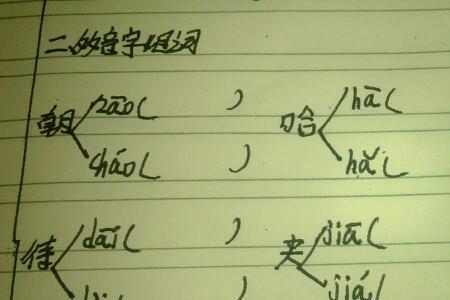 二、多音字组词
zāo( ) hā(
朝 哈
cháo( ) hǎ(
dāi( ) jiā(
待 夹
) jiá(